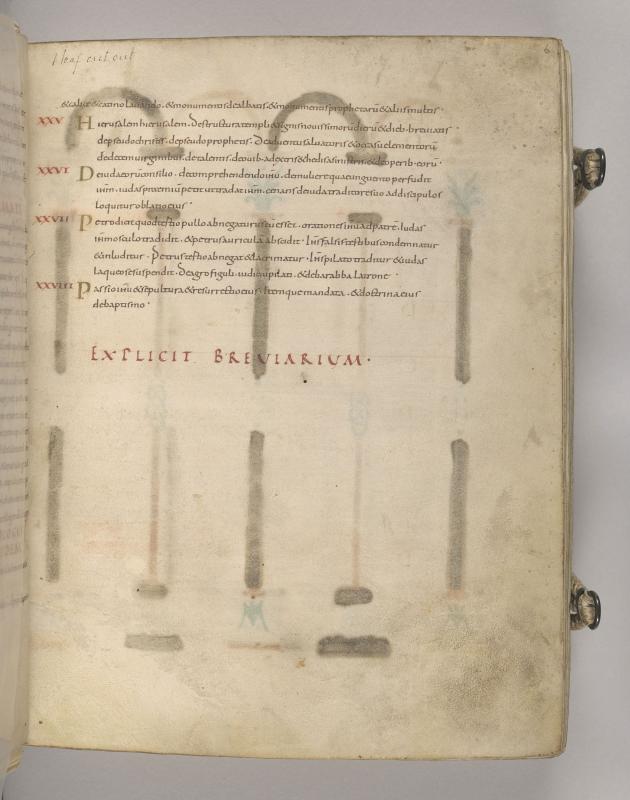 1 leaf cut out
6
& calice & catino lauando · & monumentis dealbatis · & monumentis prophetarū & aliis multis ·
XXV Hierusalem hierusalem · Destructura templi & signis nouissimorū dierū & dieb· breuiatis
de pseudo christis · de pseudo prophetis · De aduentu saluatoris & ... elementorū
de decem uirginibus · de talentis · de ouib· ad dexteris & hedis a sinistris · & de operib· eorū ·
XXVI De iudaeorū consilio · de comprehendendo iħu · de muliere quae unguento perfudit
iħm · iudas praemium petit ut tradat iħm · cenans de iuda traditore suo ad discipulos
loquitur oblatio eius ·
XXVII Petro dicit quod ter in pullo abnegaturus eū esset · oratione sim ad patrē · Iudas
iħm osculo tradidit · & petrus auriculā abscidit · In falsis testibus condemnatur
& inluditur · Petrus tertio abnegat & lacrimatur · Iħs pilato traditur & iudas
laqueo se suspendit · De agro figuli · iudicii pilati · & de barabba latrone ·
XXVIII Passio iħu & sepultura & resurrectio eius · Itemque mandata · & doctrina eius
de baptismo ·
EXPLICIT BREVIARIUM·